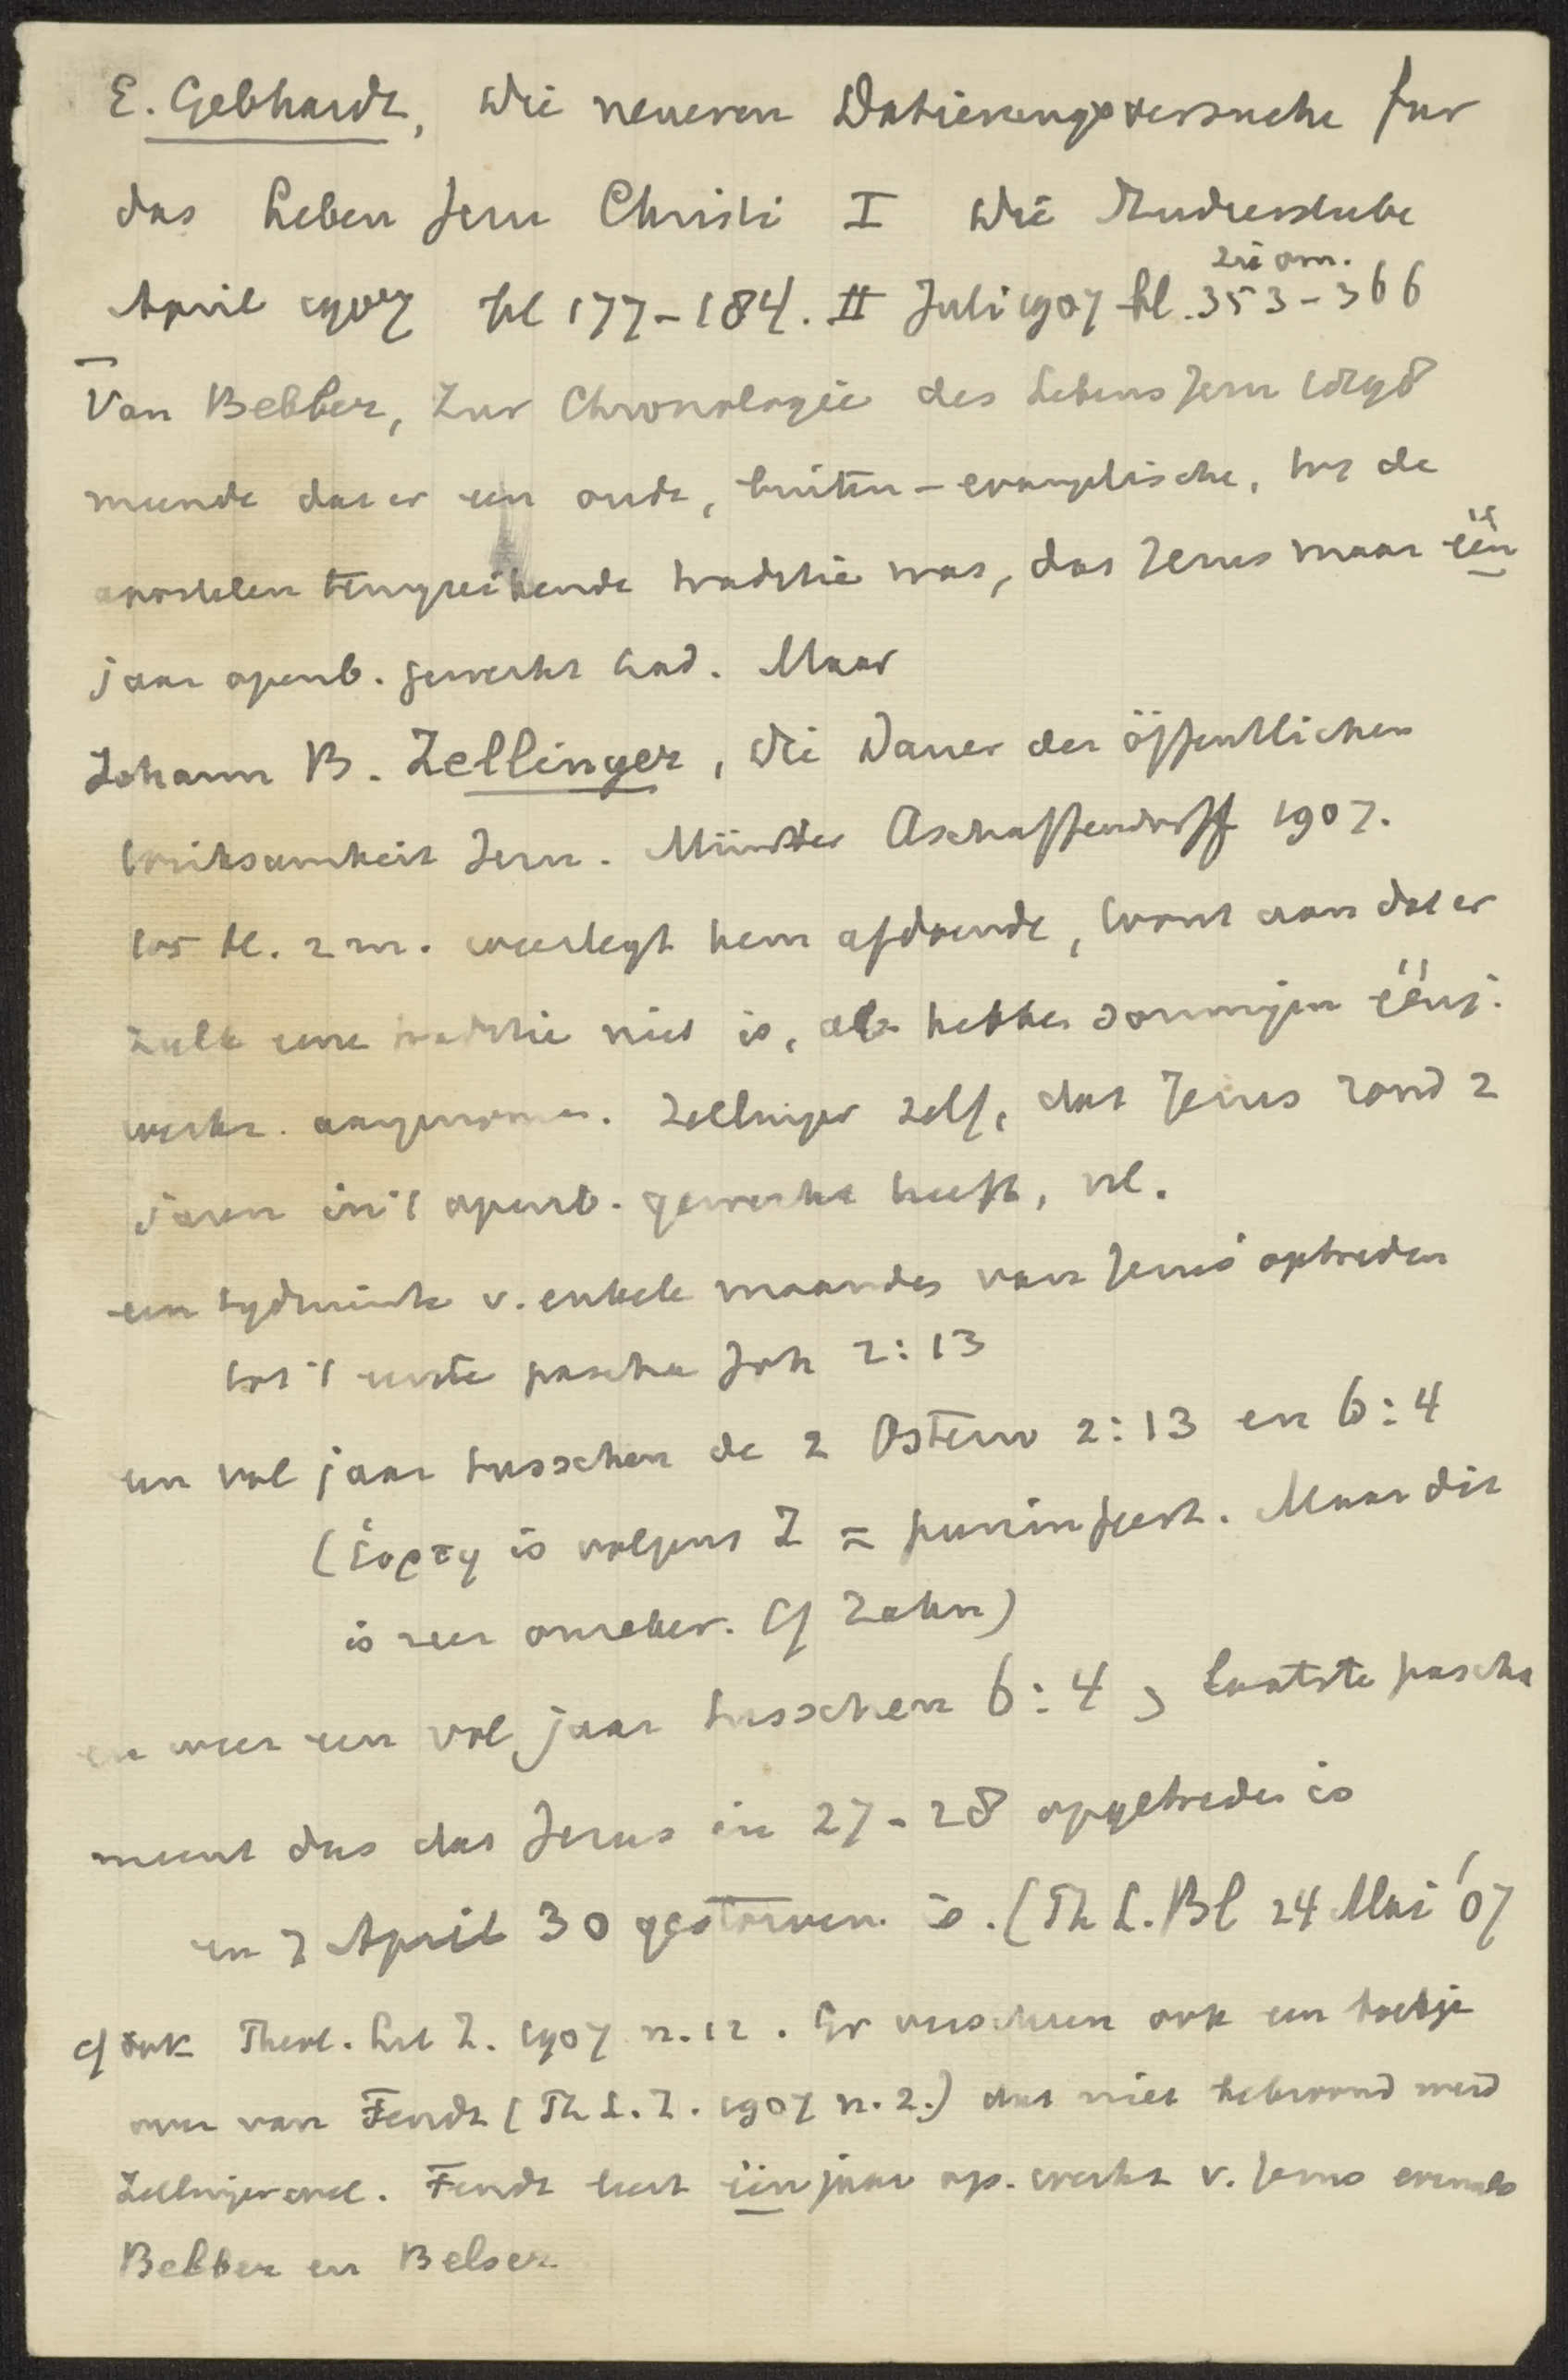 E. Gebhardt, Die neueren Datierungsversuche für
das Leben Jesu Christi I Die Studierstube
zie om.
April 1907 bl 177-184. II Juli 1907 bl. 353-366
Van Bebber, Zur Chronologie des Lebens Jesu 1898
meende dat er een oude, buiten-evangelische, tot de
apostelen terugreikende traditie was, dat Jezus maar één
jaar openb. gewerkt had. Maar
Johann B. Zellinger, Die Dauer der öffentlichen
Wirksamkeit Jesu. Münster Aschaffendorff 1907.
105 bl. 2 m. weerlegt hem afdoende, toont aan dat er
zulk eene traditie niet is, al hebben sommigen éénj.
werkz. aangenomen. Zellinger zelf, dat Jezus rond 2
jaren in 't openb. gewerkt heeft, nl.
een tydruimte v. enkele maanden van Jezus' optreden
tot 't eerste pascha Joh 2:13
een vol jaar tusschen de 2 Ostern 2:13 en 6:4
(ἑορτη is volgens Z = purimfeest. Maar dit
is zeer onzeker. Cf Zahn)
en weer een vol jaar tusschen 6:4 & laatste pascha
meent dus dat Jezus in 27-28 opgetreden is
en 7 April 30 gestorven is. (Th L. Bl 24 Mai '07
cf ook Theol. Lit Z. 1907 n. 12. Er verscheen ook een boekje
over van Fendt (Th L. Z. 1907 n. 2.) dat niet bekroond werd
Zellinger wel. Fendt leert één jaar op. werkz v. Jezus evenals
Bebber en Belser